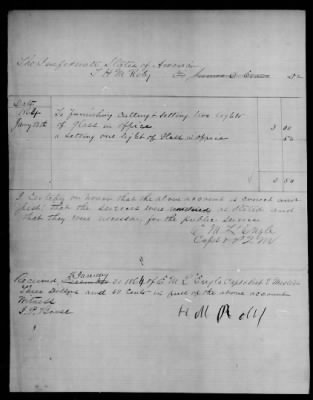 The Confederate States of America
To H M Roby Dr
Date
1864
Jany 20th To Furnishing Cutting & Setting two lights
of Glass in office 3 00
" setting one light of Glass in office 50
3 50
I Certify on honor that the above account is correct and
just; that the services were rendered as stated and
that they were necessary for the public service
E M L Engle
Capt & A Q M
Received January 20 1864 of E M L Engle Capt & Asst Q Master
Three dollars and 50 Cents in full of the above account
Witness
H M Roby